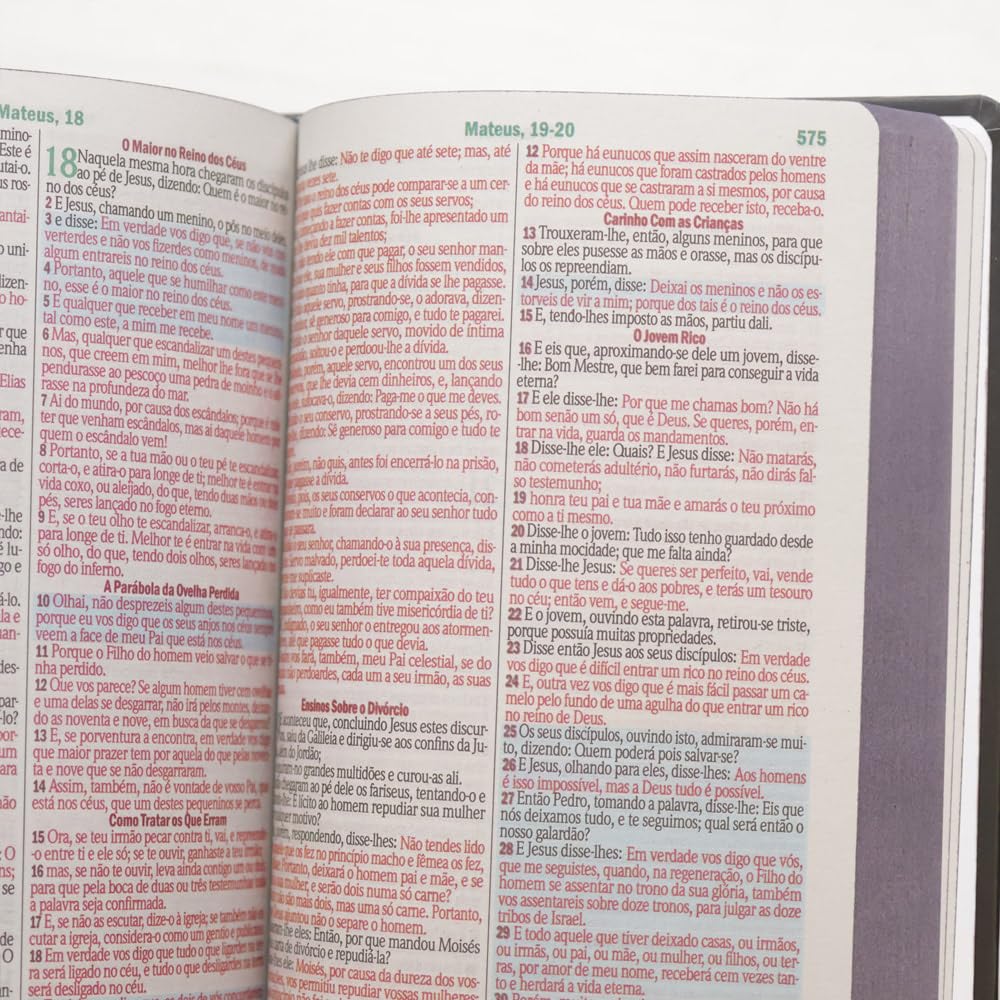 Mateus, 18
mino-
Este é
utai-o.
us ros-
antai-
o uni-
dizen-
o ho-
r que
enha
Elias
ram,
lece-
a de
-lhe
ndo:
é lu-
go e
á-lo.
la e
uan-
des-
par-
-lo?
por-
um
ara
não
: O
ns;
se
de
O
O Maior no Reino dos Céus
18 Naquela mesma hora chegaram os discípulos
ao pé de Jesus, dizendo: Quem é o maior no rei-
no dos céus?
2 E Jesus, chamando um menino, o pôs no meio deles,
3 e disse: Em verdade vos digo que, se não vos con-
verterdes e não vos fizerdes como meninos, de modo
algum entrareis no reino dos céus.
4 Portanto, aquele que se humilhar como este meni-
no, esse é o maior no reino dos céus.
5 E qualquer que receber em meu nome um menino
tal como este, a mim me recebe.
6 Mas, qualquer que escandalizar um destes peque-
nos, que creem em mim, melhor lhe fora que se lhe
pendurasse ao pescoço uma pedra de moinho e
rasse na profundeza do mar.
7 Ai do mundo, por causa dos escândalos; porque é
ter que venham escândalos, mas ai daquele homem
quem o escândalo vem!
8 Portanto, se a tua mão ou o teu pé te escandalizar,
corta-o, e atira-o para longe de ti; melhor te é entrar na
vida coxo, ou aleijado, do que, tendo duas mãos ou dois
pés, seres lançado no fogo eterno.
9 E, se o teu olho te escandalizar, arranca-o, e atira-o
para longe de ti. Melhor te é entrar na vida com um
só olho, do que, tendo dois olhos, seres lançado no
fogo do inferno.
A Parábola da Ovelha Perdida
10 Olhai, não desprezeis algum destes pequeninos
porque eu vos digo que os seus anjos nos céus sempre
veem a face de meu Pai que está nos céus.
11 Porque o Filho do homem veio salvar o que se ti-
nha perdido.
12 Que vos parece? Se algum homem tiver cem ovelhas
e uma delas se desgarrar, não irá pelos montes, deixan-
do as noventa e nove, em busca da que se desgarrou?
13 E, se porventura a encontra, em verdade vos digo
que maior prazer tem por aquela do que pelas noven-
ta e nove que se não desgarraram.
14 Assim, também, não é vontade de vosso Pai, que
está nos céus, que um destes pequeninos se perca.
Como Tratar os Que Erram
15 Ora, se teu irmão pecar contra ti, vai, e repreende-
-o entre ti e ele só; se te ouvir, ganhaste a teu irmão;
16 mas, se não te ouvir, leva ainda contigo um ou dois
para que pela boca de duas ou três testemunhas toda
a palavra seja confirmada.
17 E, se não as escutar, dize-o à igreja; se também não es-
cutar a igreja, considera-o como um gentio e publicano.
18 Em verdade vos digo que tudo o que ligardes na ter-
ra será ligado no céu, e tudo o que desligardes na terra
será desligado no céu.
Mateus, 19-20
575
lhe disse: Não te digo que até sete; mas, até
vezes sete.
o reino dos céus pode comparar-se a um cer-
quis fazer contas com os seus servos;
começando a fazer contas, foi-lhe apresentado um
devia dez mil talentos;
tendo ele com que pagar, o seu senhor man-
ele, sua mulher e seus filhos fossem vendidos,
quanto tinha, para que a dívida se lhe pagasse.
aquele servo, prostrando-se, o adorava, dizen-
sê generoso para comigo, e tudo te pagarei.
o senhor daquele servo, movido de íntima
soltou-o e perdoou-lhe a dívida.
porém, aquele servo, encontrou um dos seus
que lhe devia cem dinheiros, e, lançando
sufocava-o, dizendo: Paga-me o que me deves.
o seu conservo, prostrando-se a seus pés, ro-
dizendo: Sê generoso para comigo e tudo te
porém, não quis, antes foi encerrá-lo na prisão,
pagasse a dívida.
pois, os seus conservos o que acontecia, con-
se muito e foram declarar ao seu senhor tudo
passara.
o seu senhor, chamando-o à sua presença, dis-
servo malvado, perdoei-te toda aquela dívida,
me suplicaste.
devias tu, igualmente, ter compaixão do teu
como eu também tive misericórdia de ti?
indignado, o seu senhor o entregou aos atormen-
até que pagasse tudo o que devia.
vos fará, também, meu Pai celestial, se do
não perdoardes, cada um a seu irmão, as suas
Ensinos Sobre o Divórcio
aconteceu que, concluindo Jesus estes discur-
saiu da Galileia e dirigiu-se aos confins da Ju-
do jordão;
grandes multidões e curou-as ali.
chegaram ao pé dele os fariseus, tentando-o e
-lhe: É lícito ao homem repudiar sua mulher
qualquer motivo?
porém, respondendo, disse-lhes: Não tendes lido
que os fez no princípio macho e fêmea os fez,
Portanto, deixará o homem pai e mãe, e se
mulher, e serão dois numa só carne?
não são mais dois, mas uma só carne. Portanto,
Deus ajuntou não o separe o homem.
-lhe eles: Então, por que mandou Moisés
carta de divórcio e repudiá-la?
eles: Moisés, por causa da dureza dos vos-
vos permitiu repudiar vossas mulheres;
12 Porque há eunucos que assim nasceram do ventre
da mãe; há eunucos que foram castrados pelos homens
e há eunucos que se castraram a si mesmos, por causa
do reino dos céus. Quem pode receber isto, receba-o.
Carinho Com as Crianças
13 Trouxeram-lhe, então, alguns meninos, para que
sobre eles pusesse as mãos e orasse, mas os discípu-
los os repreendiam.
14 Jesus, porém, disse: Deixai os meninos e não os es-
torveis de vir a mim; porque dos tais é o reino dos céus.
15 E, tendo-lhes imposto as mãos, partiu dali.
O Jovem Rico
16 E eis que, aproximando-se dele um jovem, disse-
-lhe: Bom Mestre, que bem farei para conseguir a vida
eterna?
17 E ele disse-lhe: Por que me chamas bom? Não há
bom senão um só, que é Deus. Se queres, porém, en-
trar na vida, guarda os mandamentos.
18 Disse-lhe ele: Quais? E Jesus disse: Não matarás,
não cometerás adultério, não furtarás, não dirás fal-
so testemunho;
19 honra teu pai e tua mãe e amarás o teu próximo
como a ti mesmo.
20 Disse-lhe o jovem: Tudo isso tenho guardado desde
a minha mocidade; que me falta ainda?
21 Disse-lhe Jesus: Se queres ser perfeito, vai, vende
tudo o que tens e dá-o aos pobres, e terás um tesouro
no céu; então vem, e segue-me.
22 E o jovem, ouvindo esta palavra, retirou-se triste,
porque possuía muitas propriedades.
23 Disse então Jesus aos seus discípulos: Em verdade
vos digo que é difícil entrar um rico no reino dos céus.
24 E, outra vez vos digo que é mais fácil passar um ca-
melo pelo fundo de uma agulha do que entrar um rico
no reino de Deus.
25 Os seus discípulos, ouvindo isto, admiraram-se mui-
to, dizendo: Quem poderá pois salvar-se?
26 E Jesus, olhando para eles, disse-lhes: Aos homens
é isso impossível, mas a Deus tudo é possível.
27 Então Pedro, tomando a palavra, disse-lhe: Eis que
nós deixamos tudo, e te seguimos; qual será então o
nosso galardão?
28 E Jesus disse-lhes: Em verdade vos digo que vós,
que me seguistes, quando, na regeneração, o Filho do
homem se assentar no trono da sua glória, também
vos assentareis sobre doze tronos, para julgar as doze
tribos de Israel.
29 E todo aquele que tiver deixado casas, ou irmãos,
ou irmãs, ou pai, ou mãe, ou mulher, ou filhos, ou ter-
ras, por amor de meu nome, receberá cem vezes tan-
to e herdará a vida eterna.